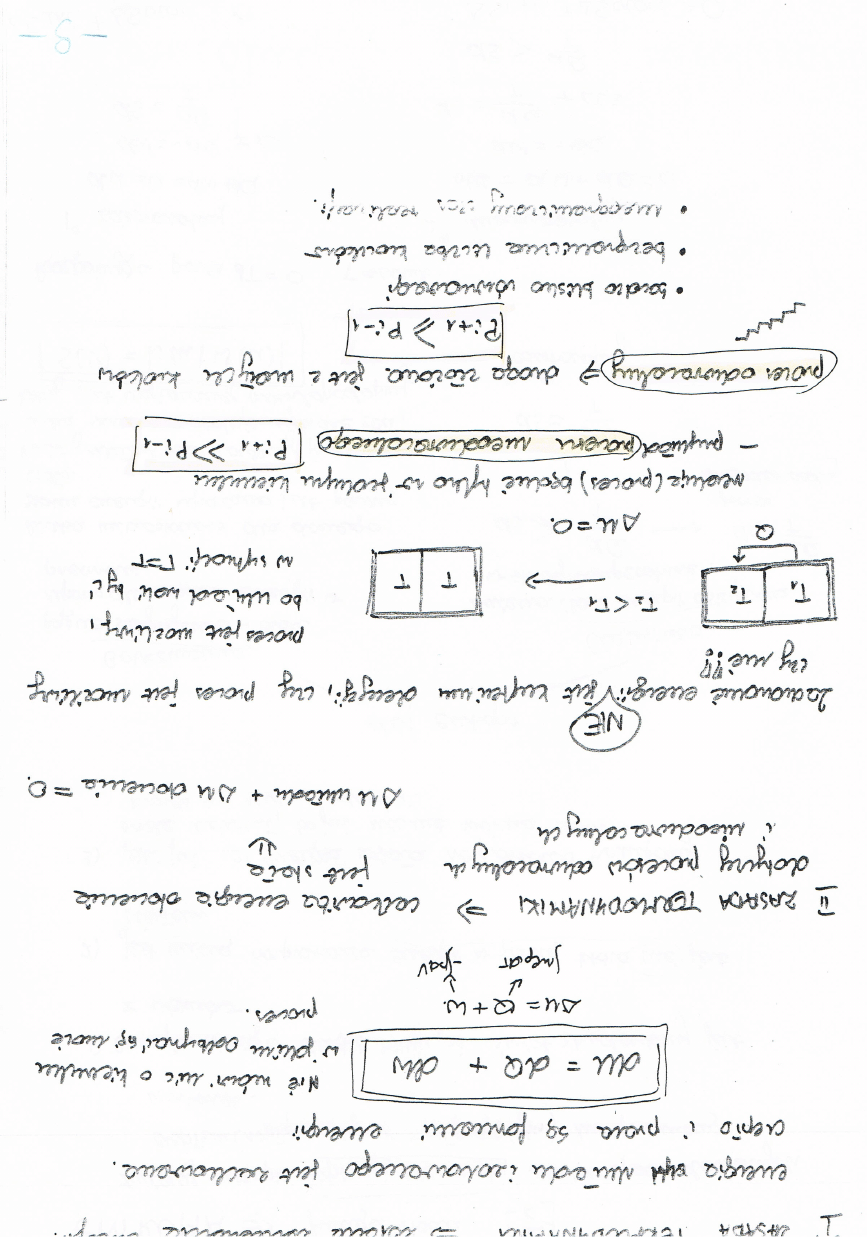 I ZASADA TERMODYNAMIKI ⇒ zasada zachowania energii.
energia układu izolowanego jest zachowana.
ciepło i praca są formami energii
dU = dQ + dW
Nie mówi nic o kierunku
w jakim odbywać się może
proces.
ΔU = Q + W.
∫mcpdT -∫pdV
II ZASADA TERMODYNAMIKI ⇒ całkowita energia otoczenia
dotyczy procesów odwracalnych jest stała
i nieodwracalnych
ΔU układu + ΔU otoczenia = 0.
NIE
Zachowanie energii jest kryterium decyzji, czy proces jest możliwy
czy nie!!!
T₁ T₂ T₂ < T₁ → T T
Q
proces jest możliwy,
bo układ woli być
w sytuacji T=T
ΔU = 0.
reakcja (proces) będzie tylko w jednym kierunku
– przykład procesu nieodwracalnego Pi+1 >> Pi-1
proces odwracalny ⇒ droga złożona jest z małych kroków
Pi+1 ⩾ Pi-1
• bardzo blisko równowagi
• bezgraniczna liczba kroków
• nieograniczony czas realizacji.
-8-